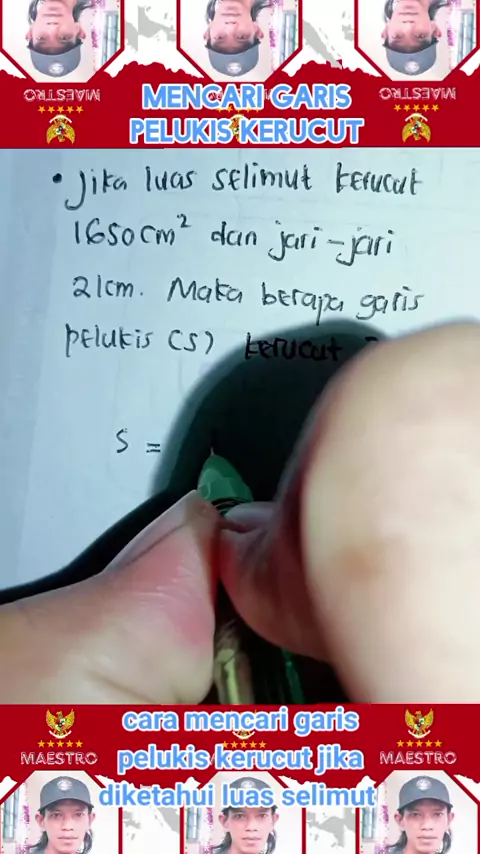 MAESTRO MAESTRO MAESTRO
MENCARI GARIS
PELUKIS KERUCUT
• Jika luas selimut kerucut
1650 cm² dan jari-jari
21cm. Maka berapa garis
pelukis (s) kerucut
s =
cara mencari garis
pelukis kerucut jika
diketahui luas selimut
MAESTRO MAESTRO